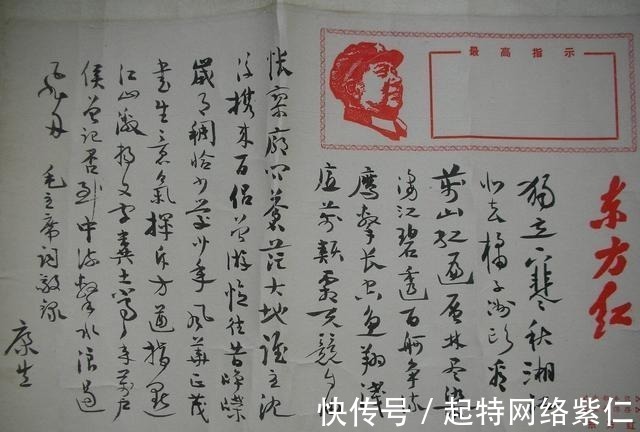 最高指示
东方红
獨立寒秋湘江
北去橘子洲頭看
萬山紅遍层林尽染
漫江碧透百舸争流
鹰擊长空鱼翔浅
底萬類霜天競自由
怅寥廓问苍茫大地谁主沈
浮携来百侣曾游忆往昔峥嵘
歲月稠恰同学少年风華正茂
書生意氣挥斥方遒指點
江山激扬文字糞土当年萬户
侯曾记否到中流擊水浪遏
飞舟 毛主席词敬录
康生
快传号/起特网络紫仁